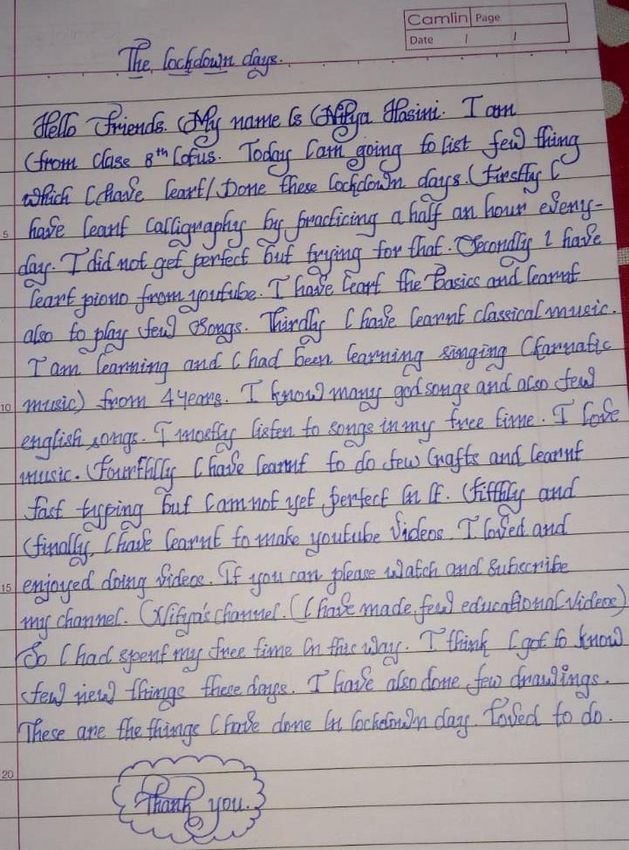 Camlin Page
Date / /
The lockdown days.
Hello Friends. My name is Nitya Hasini. I am
from class 8th Lotus. Today I am going to list few thing
which I have leart/Done these lockdown days. Firstly I
5 have leant calligraphy by practicing a half an hour every-
day. I did not get perfect but trying for that. Secondly I have
leart piono from youtube. I have leart the Basics and learnt
also to play few songs. Thirdly I have learnt classical music.
I am learning and I had been learning singing (farnatic
10 music) from 4 years. I know many god songs and also few
english songs. I mostly listen to songs in my free time. I love
music. Fourthlly I have learnt to do few crafts and learnt
fast typping but I am not yet perfect in it. Fifthly and
finally, I have learnt to make youtube videos. I loved and
15 enjoyed doing videos. If you can please watch and subscribe
my channel. (Nitya's channel. (I have made few educational videos)
So I had spent my free time in this way. I think I got to know
few new things these days. I have also done few drawlings.
These are the things I have done in lockdown day. Loved to do.
20
Thank you.